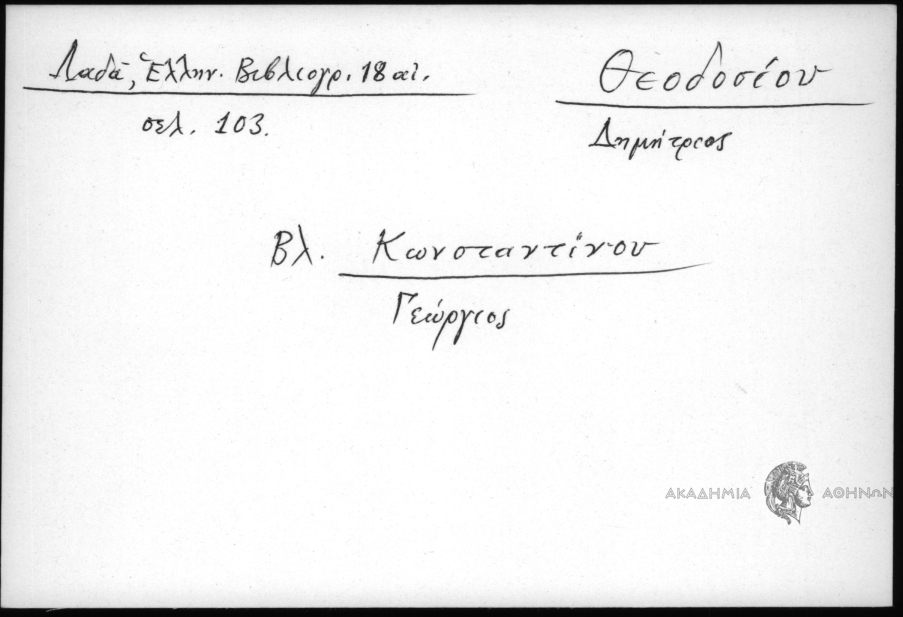 Λαδᾶ, Ἑλλην. Βιβλιογρ. 18 αἰ.
σελ. 103.
Θεοδοσίου
Δημήτριος
Βλ. Κωνσταντίνου
Γεώργιος
ΑΚΑΔΗΜΙΑ ΑΘΗΝΩΝ